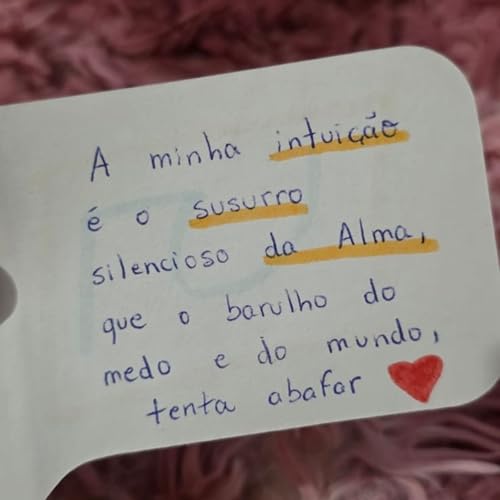 A minha intuição
é o susurro
silencioso da Alma,
que o barulho do
medo e do mundo,
tenta abafar